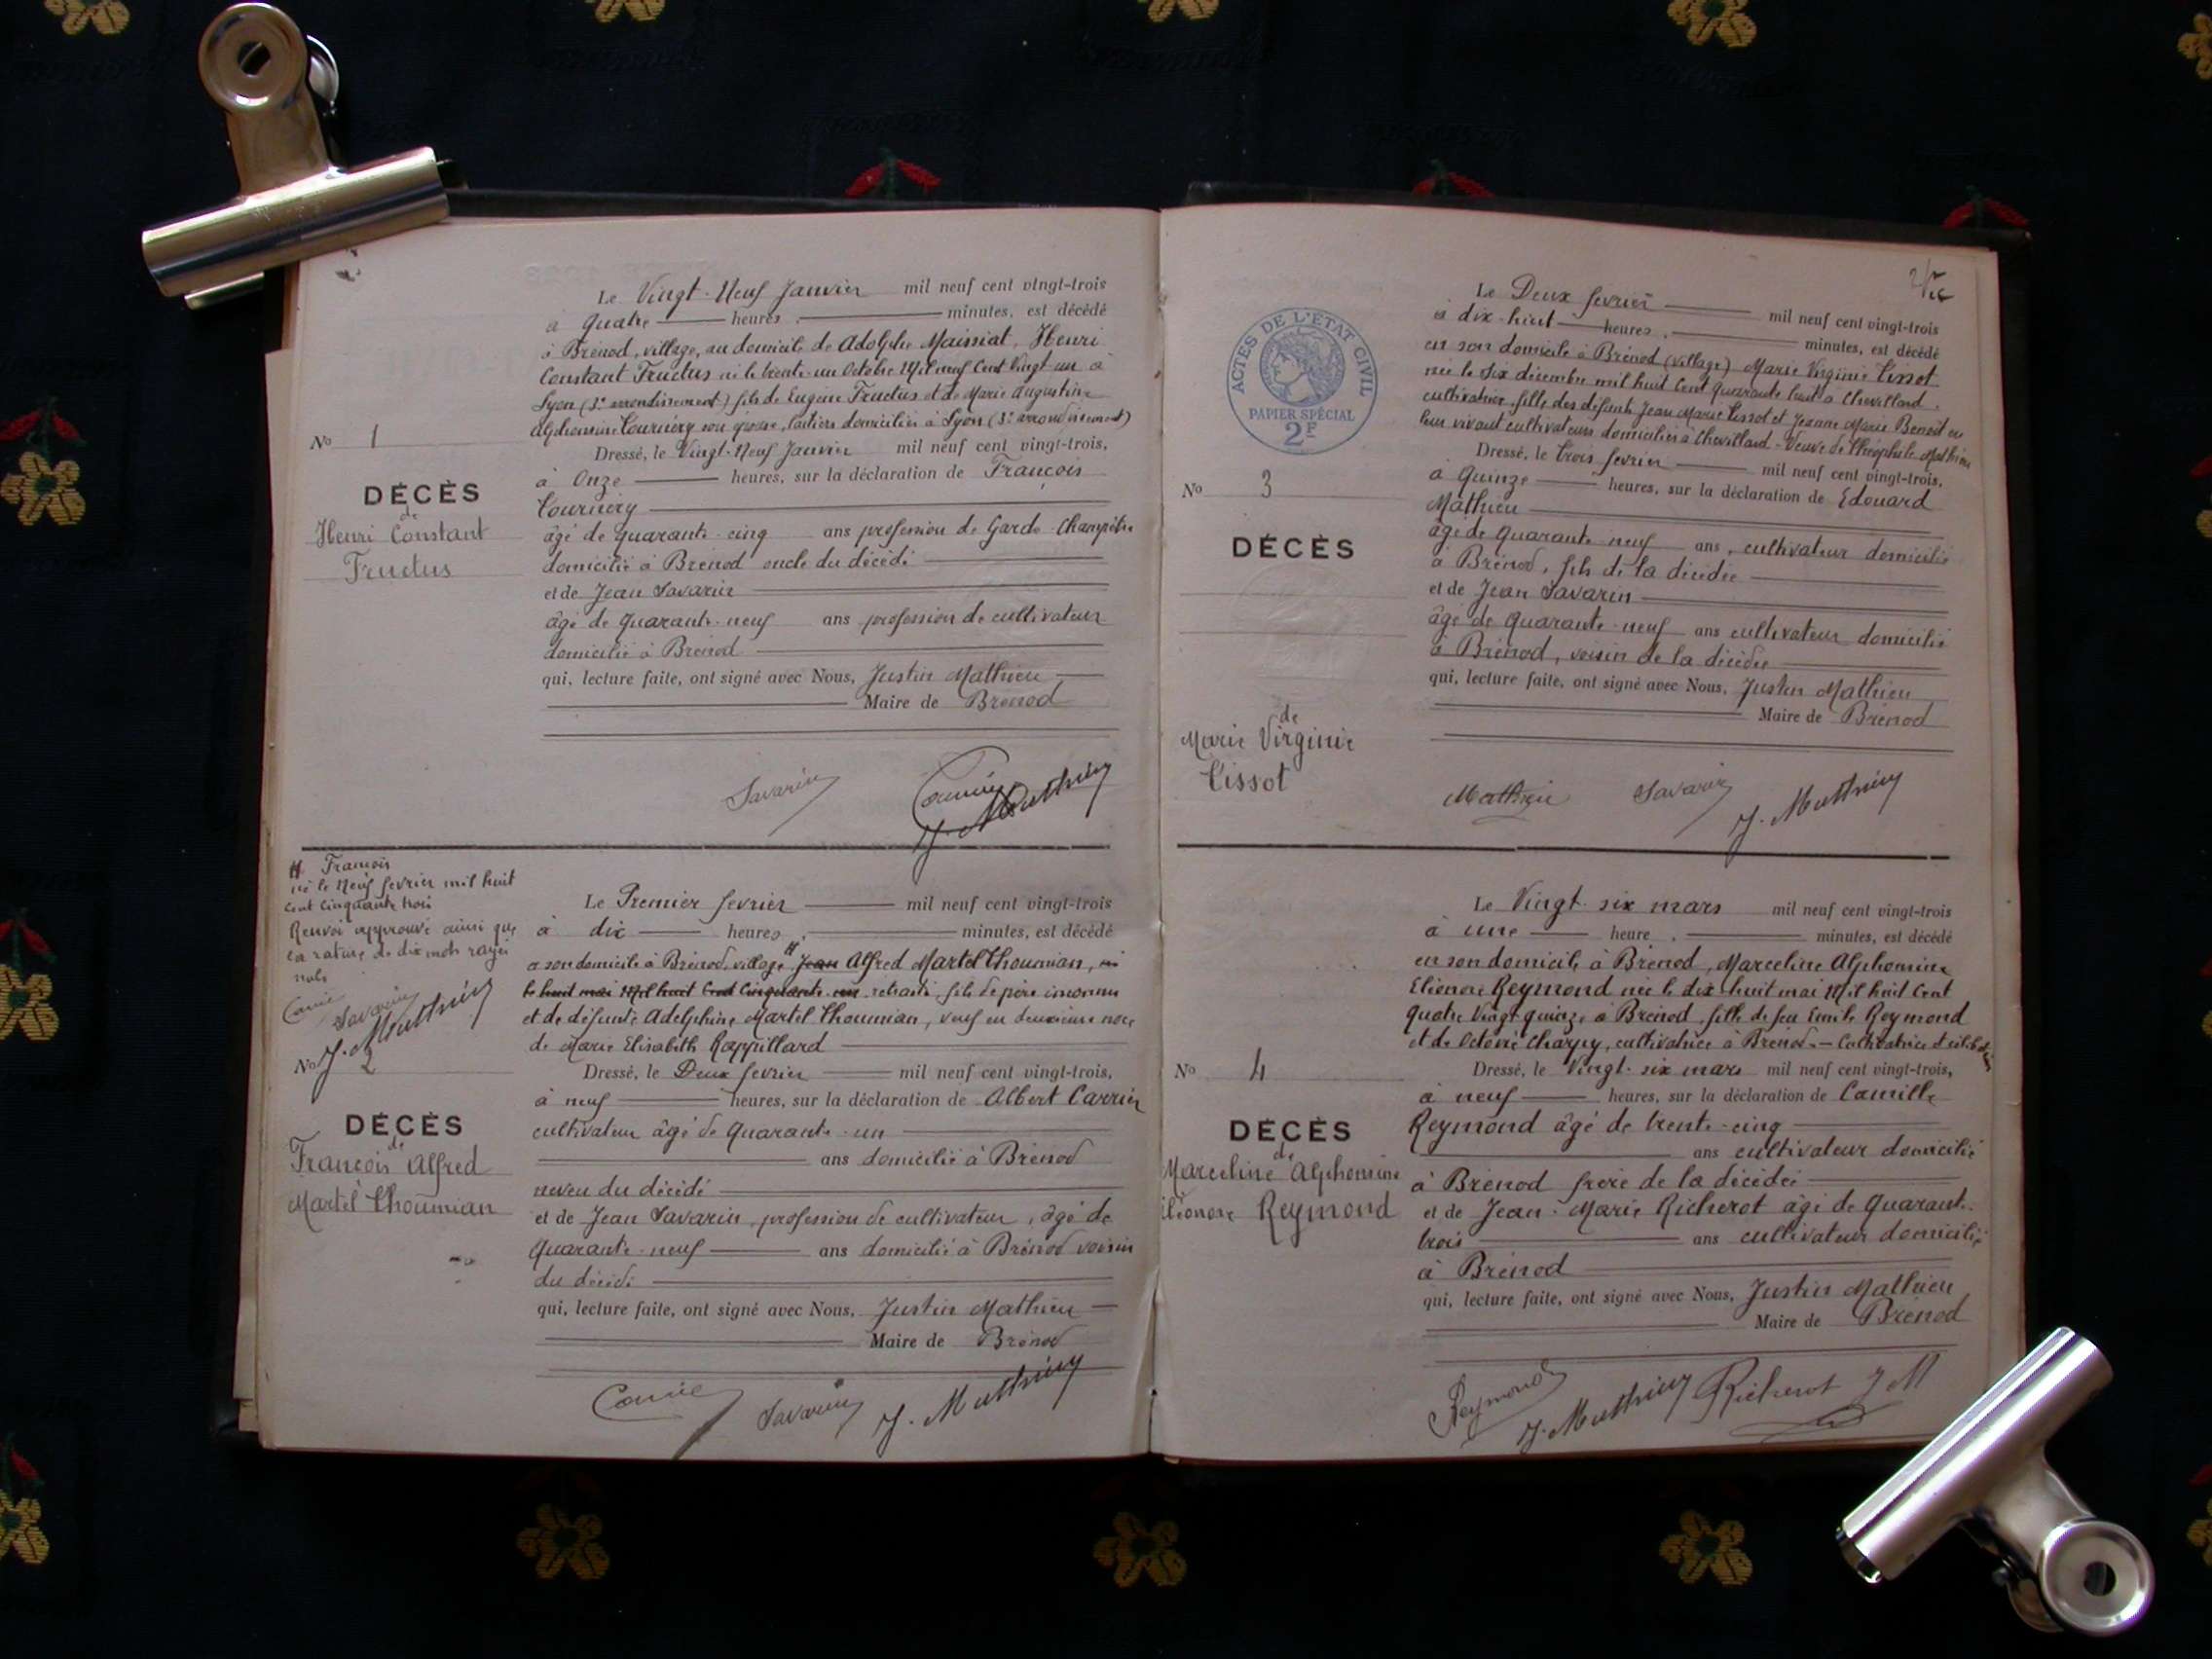 Le Vingt-Neuf Janvier mil neuf cent vingt-trois
à Quatre heures, minutes, est décédé
à Brénod, village, au domicile de Adolphe Maissiat, Henri
Constant Fructus né le trente-un Octobre Mil neuf Cent Vingt un à
Lyon (3e arrondissement) fils de Eugène Fructus et de Marie Augustine
Alphonsine Tournéry son épouse, laitiers domiciliés à Lyon (3e arrondissement)
No 1
Dressé, le Vingt-Neuf Janvier mil neuf cent vingt-trois,
à Onze heures, sur la déclaration de François
Tournéry
DÉCÈS
de
Henri Constant
Fructus
âgé de quarante-cinq ans profession de Garde-Champêtre
domicilié à Brénod oncle du décédé
et de Jean Savarin
âgé de quarante-neuf ans profession de cultivateur
domicilié à Brénod
qui, lecture faite, ont signé avec Nous, Justin Mathieu
Maire de Brénod
Savarin J. Mathieu
H François
né le Neuf février mil huit
cent cinquante trois
Renvoi approuvé ainsi que
la rature de dix mots rayés
nuls
Savarin
J. Mathieu
No 2
DÉCÈS
de
François Alfred
Martel Thoumian
Le Premier février mil neuf cent vingt-trois
à dix heures, minutes, est décédé
a son domicile à Brénod, village H Jean Alfred Martel Thoumian, né
le huit mai Mil huit Cent Cinquante-un retraité, fils de père inconnu
et de défunte Adelphine Martel Thoumian, veuf en deuxième noce
de Marie Elisabeth Rappillard
Dressé, le Deux février mil neuf cent vingt-trois,
à neuf heures, sur la déclaration de Albert Carrier
cultivateur âgé de Quarante-un
ans domicilié à Brénod
neveu du décédé
et de Jean Savarin, profession de cultivateur, âgé de
Quarante-neuf ans domicilié à Brénod voisin
du décédé
qui, lecture faite, ont signé avec Nous, Justin Mathieu
Maire de Brénod
Savarin J. Mathieu
ACTES DE L'ÉTAT CIVIL
PAPIER SPÉCIAL
2F
Le Deux février mil neuf cent vingt-trois
à dix-huit heures, minutes, est décédé
en son domicile à Brénod (village) Marie Virginie Tissot
née le six décembre mil huit Cent quarante huit à Chevillard,
cultivatrice, fille des défunts Jean Marie Tissot et Jeanne Marie Benoit en
leur vivant cultivateurs domiciliés à Chevillard - Veuve de Théophile Mathieu
No 3
DÉCÈS
de
Marie Virginie
Tissot
Dressé, le trois février mil neuf cent vingt-trois,
à Quinze heures, sur la déclaration de Edouard
Mathieu
âgé de quarante-neuf ans, cultivateur domicilié
à Brénod, fils de la décédée
et de Jean Savarin
âgé de quarante-neuf ans cultivateur domicilié
à Brénod, voisin de la décédée
qui, lecture faite, ont signé avec Nous, Justin Mathieu
Maire de Brénod
Mathieu Savarin J. Mathieu
Le Vingt-six mars mil neuf cent vingt-trois
à une heure, minutes, est décédé
en son domicile à Brénod, Marceline Alphonsine
Eléonore Reymond née le dix-huit mai Mil huit Cent
quatre Vingt-quinze à Brénod, fille de feu Emile Reymond
et de Octavie Charpy, cultivatrice à Brénod. - Cultivatrice et célibataire
No 4
DÉCÈS
de
Marceline Alphonsine
Eléonore Reymond
Dressé, le Vingt-six mars mil neuf cent vingt-trois,
à neuf heures, sur la déclaration de Camille
Reymond âgé de trente-cinq
ans cultivateur domicilié
à Brénod frère de la décédée
et de Jean-Marie Richerot âgé de quarante-
trois ans cultivateur domicilié
à Brénod
qui, lecture faite, ont signé avec Nous, Justin Mathieu
Maire de Brénod
Reymond J. Mathieu Richerot J M